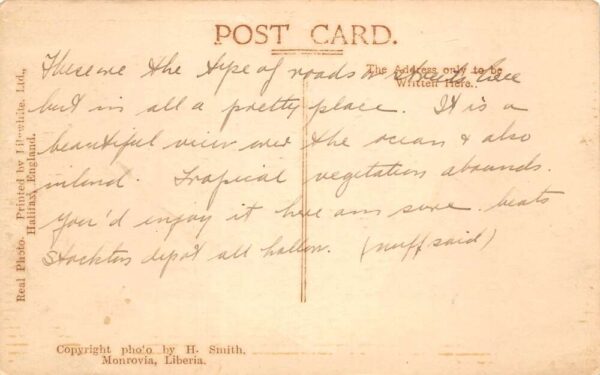 POST CARD.
The Address only to be
Written Here.
These are the type of roads & streets here
but in all a pretty place. It is a
beautiful view over the ocean & also
inland. Tropical vegetation abounds.
You'd enjoy it here am sure. beats
Stockton depot all hollow. (nuff said)
Real Photo. Printed by Lilywhite, Ltd.,
Halifax, England.
Copyright photo by H. Smith,
Monrovia, Liberia.